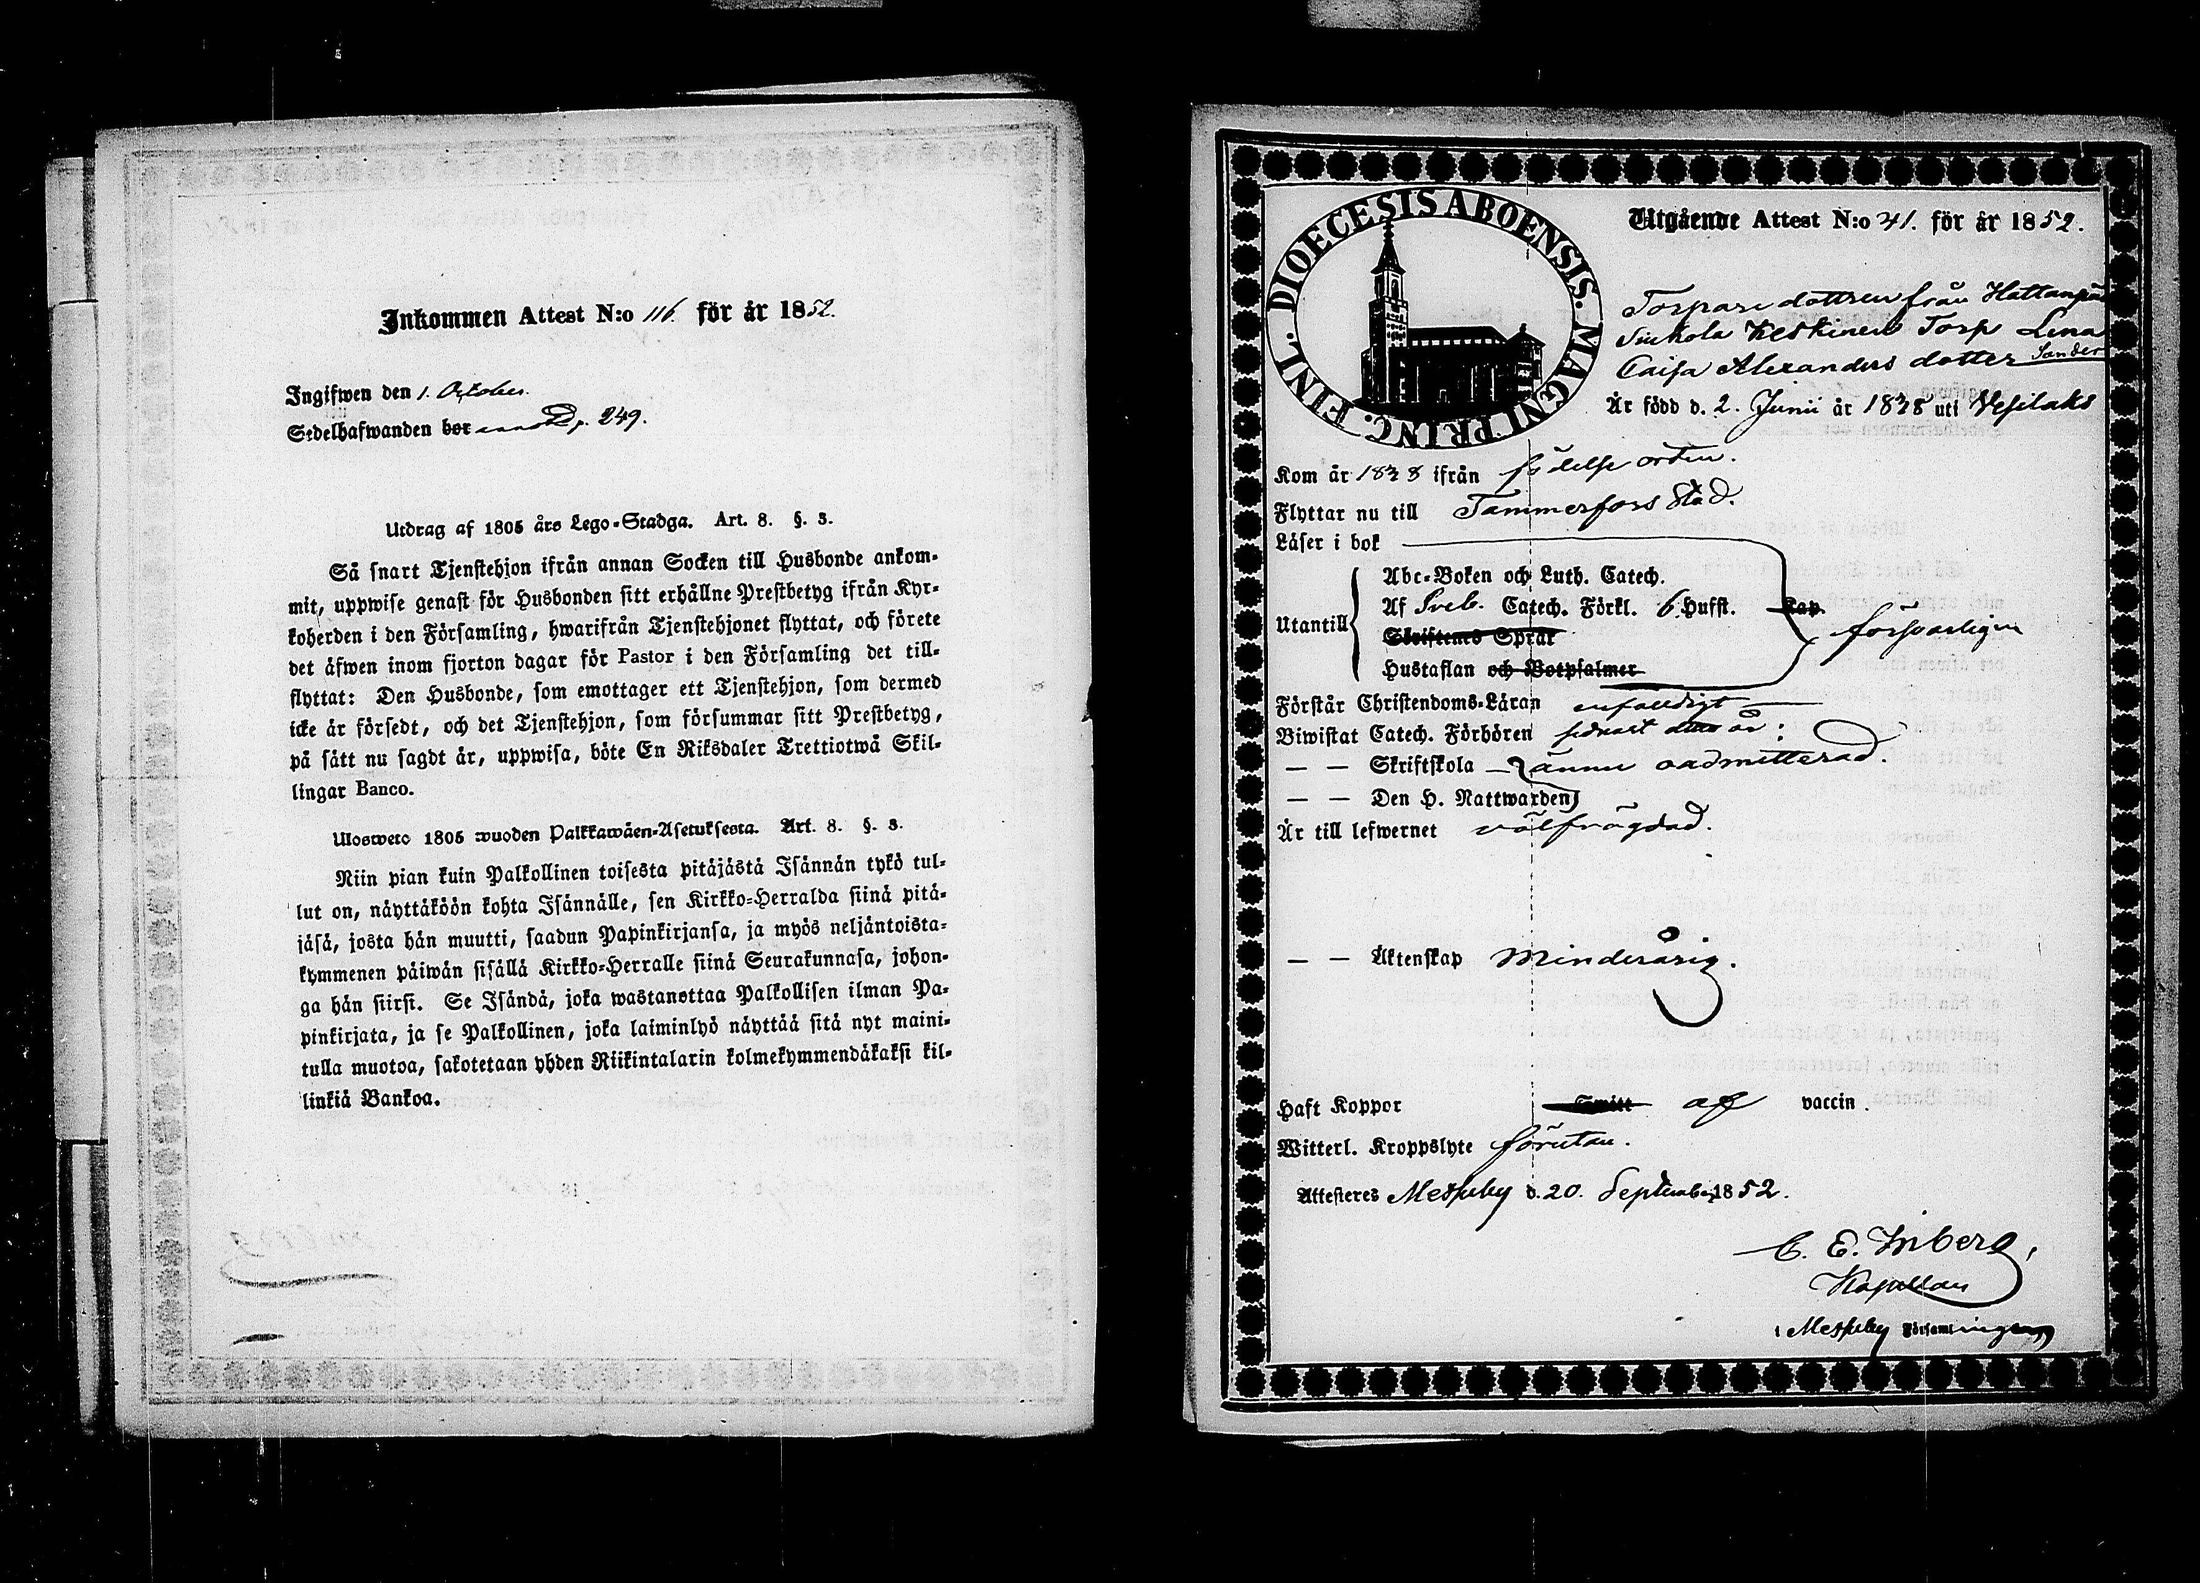 Inkommen Attest N:o 116. för år 1852.
Ingifwen den 1. October.
Sedelhafwanden bor p. 249.
Utdrag af 1805 års Lego-Stadga. Art. 8. §. 3.
Så snart Tjenstehjon ifrån annan Socken till Husbonde ankom-
mit, uppwise genast för Husbonden sitt erhållne Prestbetyg ifrån Kyr-
koherden i den Församling, hwarifrån Tjenstehjonet flyttat, och förete
det äfwen inom fjorton dagar för Pastor i den Församling det till-
flyttat: Den Husbonde, som emottager ett Tjenstehjon, som dermed
icke är försedt, och det Tjenstehjon, som försummar sitt Prestbetyg,
på sätt nu sagdt är, uppwisa, böte En Riksdaler Trettiotwå Skil-
lingar Banco.
Ulosweto 1805 wuoden Palkkawäen-Asetuksesta. Art. 8. §. 3.
Niin pian kuin Palkollinen toisesta pitäjästä Isännän tykö tul-
lut on, näyttäköön kohta Isännälle, sen Kirkko-Herralda siinä pitä-
jäsä, josta hän muutti, saadun Papinkirjansa, ja myös neljäntoista-
kymmenen päiwän sisällä Kirkko-Herralle siinä Seurakunnasa, johon-
ga hän siirsi. Se Isändä, joka wastanottaa Palkollisen ilman Pa-
pinkirjata, ja se Palkollinen, joka laiminlyö näyttää sitä nyt maini-
tulla muotoa, sakotetaan yhden Riikintalarin kolmekymmendäkaksi kil-
linkiä Bankoa.
DIOECESIS ABOENSIS. MAGNI PRINC. FINL.
Utgående Attest N:o 41. för år 1852.
Torpare dottren från Hattanpää
Sinkola Keskinen Torp Lena
Caisa Alexanders dotter Sander
Är född d. 2. Junii år 1838 uti Vesilaks
Kom år 1838 ifrån födelse orten.
Flyttar nu till Tammerfors Stad.
Läser i bok
Utantill
Abc-Boken och Luth. Catech.
Af Sveb. Catech. Förkl. 6 Hufst. Kap.
försvarligen
Skriftenes Språk
Hustaflan och Botpsalmer
Förstår Christendoms-Läran enfaldigt
Biwistat Catech. Förhören sednast detta år:
— — Skriftskola — ännu oadmitterad.
— — Den H. Nattwarden
Är till lefwernet välfrägdad.
— — Äktenskap Minderårig.
Haft Koppor Smitt af vaccin.
Witterl. Kroppslyte förutan.
Attesteres Messuby d. 20. September 1852.
C. E. Inberg,
Kapellan
i Messuby Församlingen